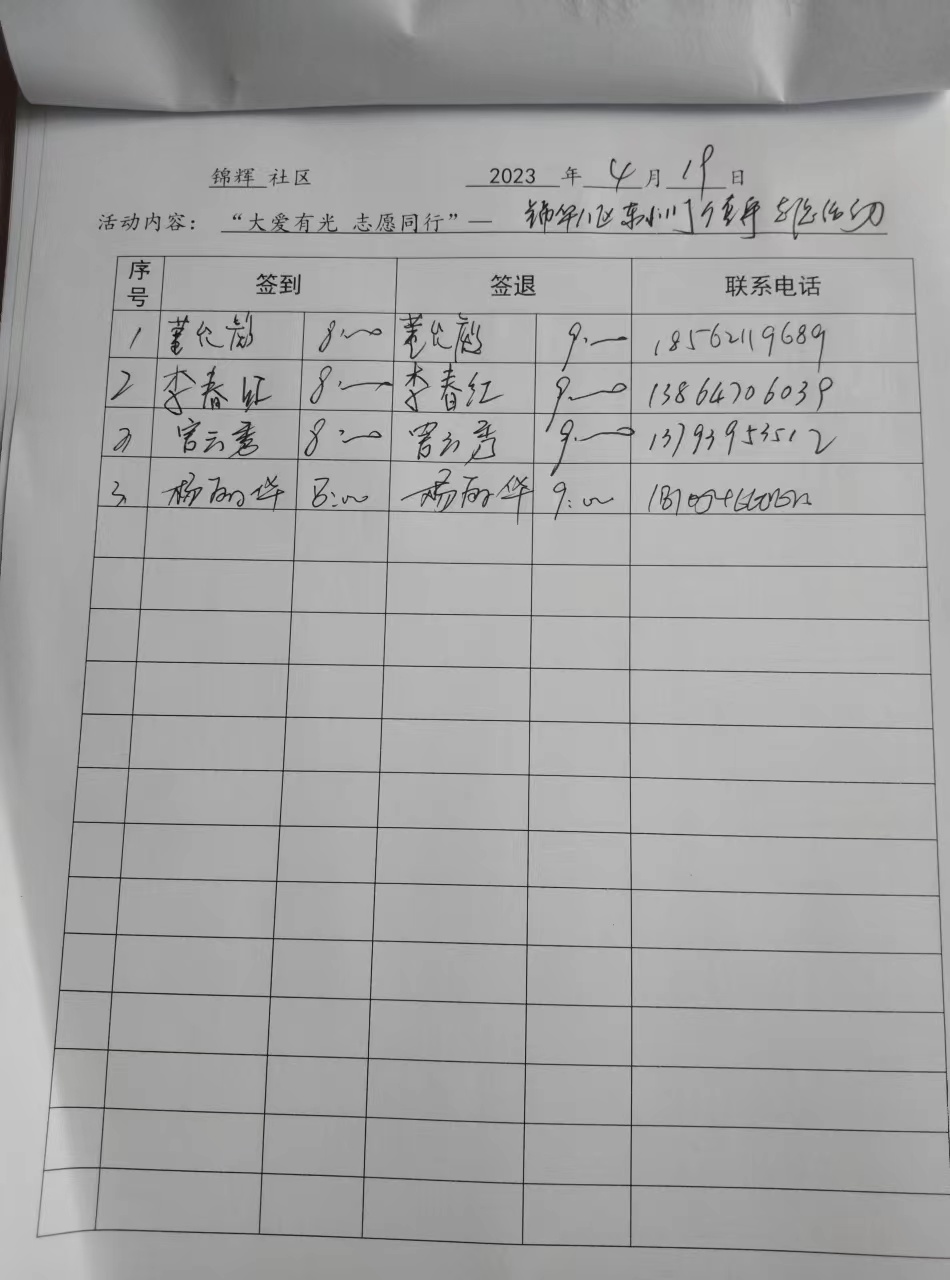 锦辉 社区 2023 年 4 月 19 日
活动内容： “大爱有光 志愿同行”— 锦华八区东小门
序号 签到 签退 联系电话
1 董允彪 8:00 董允彪 9:00 18562119689
2 李春红 8:00 李春红 9:00 13864706039
3 官云秀 8:00 官云秀 9:00 13793953512
3 杨丽华 8:00 杨丽华 9:00